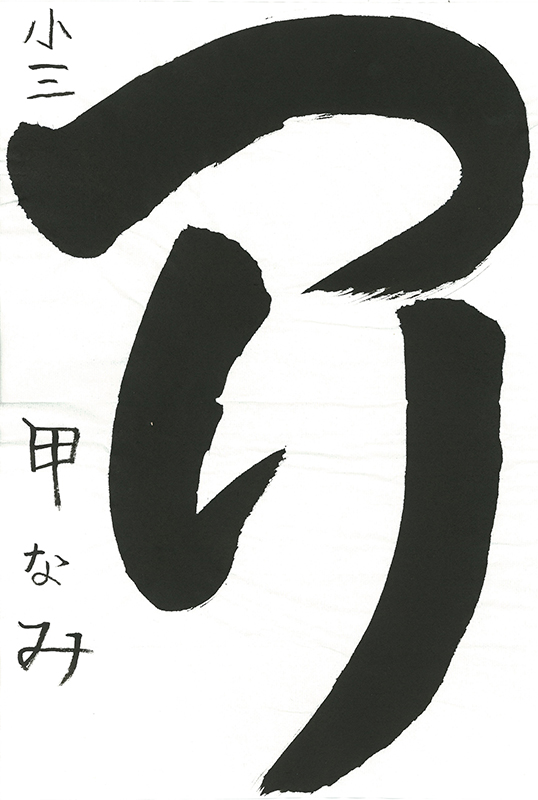 つり
小三 甲なみ